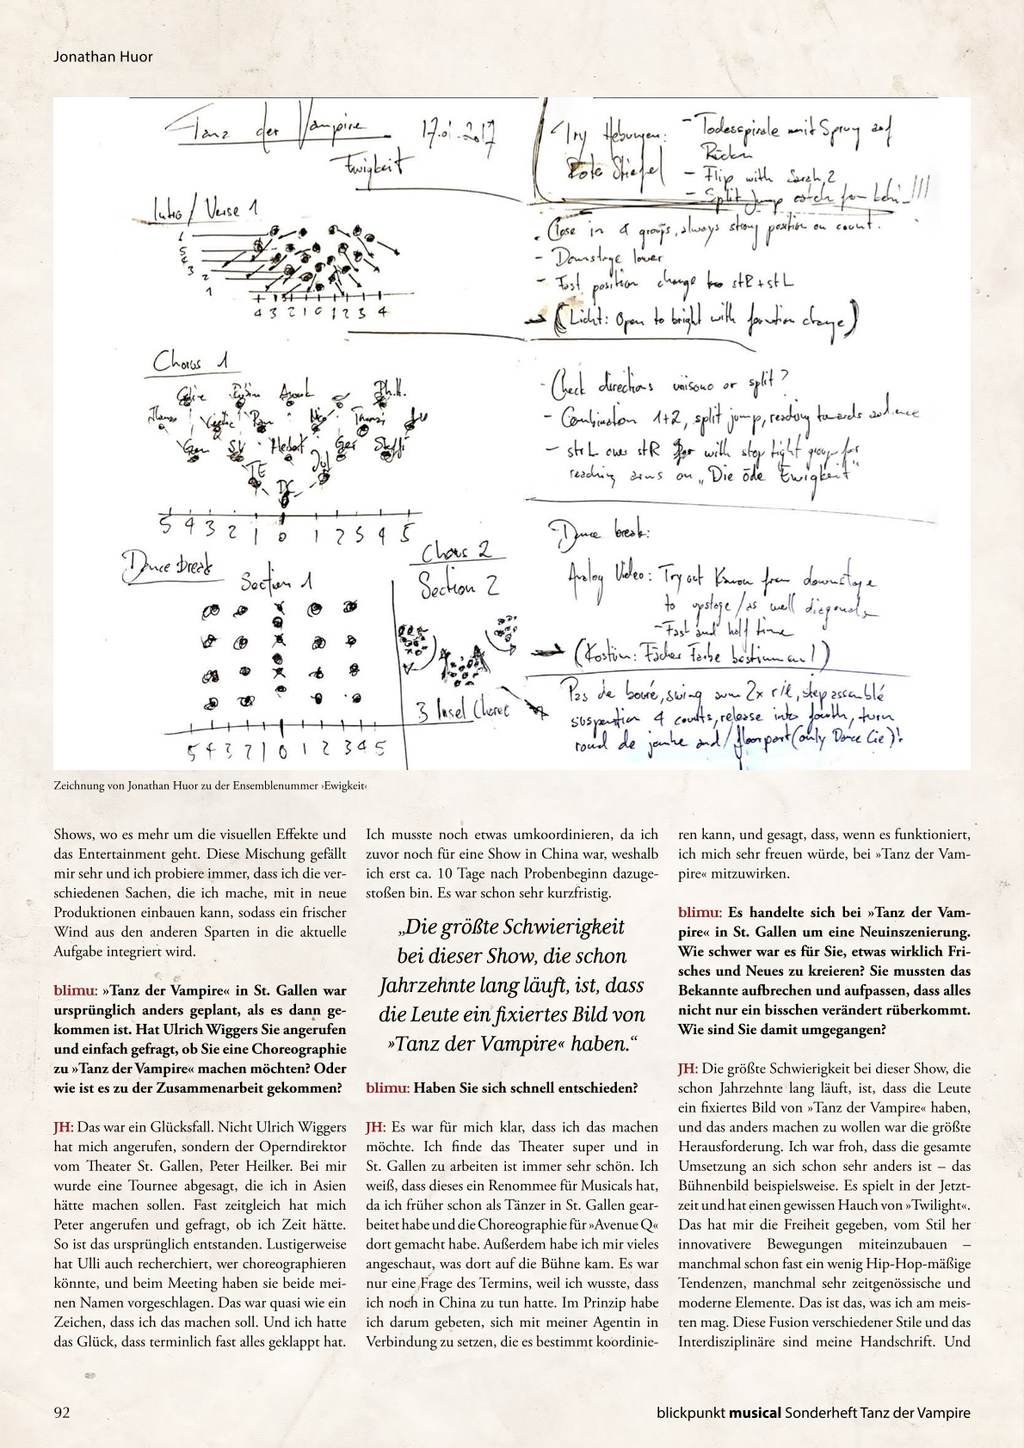 Jonathan Huor
Tanz der Vampire 17.01.2017
Ewigkeit
Try Hebungen: - Todesspirale mit Sprung auf
Rücken
Rote Stiefel
- Flip with Sarah 2
- Split jump catch from
Intro / Verse 1
6
5
4
3
2
1
4 3 2 1 0 1 2 3 4
Close in 4 groups, always strong position on count.
- Downstage lower
- Fast position change stR + stL
(Licht: Open to bright with formation change)
Chorus 1
5 4 3 2 1 0 1 2 3 4 5
- Check directions unisono or split?
- Combination 1+2, split jump, reading towards audience
- str L over stR with stop tight group for
reaching arms on „Die öde Ewigkeit"
Dance break
Section 1
5 4 3 2 1 0 1 2 3 4 5
Chorus 2
Section 2
3 Insel Choreo
Dance break:
Analog Video: Try out from downstage
to upstage / as well diagonals
- Fast and half time
(Kostüm: Fächer Farbe bestimmen!)
Pas de bouré, swing arm 2x r/l, step assemblé
suspention 4 counts, release into fourth, turn
rond de jambe and / floorpart (only Dance Cie)!
Zeichnung von Jonathan Huor zu der Ensemblenummer ›Ewigkeit‹
Shows, wo es mehr um die visuellen Effekte und
das Entertainment geht. Diese Mischung gefällt
mir sehr und ich probiere immer, dass ich die ver-
schiedenen Sachen, die ich mache, mit in neue
Produktionen einbauen kann, sodass ein frischer
Wind aus den anderen Sparten in die aktuelle
Aufgabe integriert wird.
blimu: »Tanz der Vampire« in St. Gallen war
ursprünglich anders geplant, als es dann ge-
kommen ist. Hat Ulrich Wiggers Sie angerufen
und einfach gefragt, ob Sie eine Choreographie
zu »Tanz der Vampire« machen möchten? Oder
wie ist es zu der Zusammenarbeit gekommen?
JH: Das war ein Glücksfall. Nicht Ulrich Wiggers
hat mich angerufen, sondern der Operndirektor
vom Theater St. Gallen, Peter Heilker. Bei mir
wurde eine Tournee abgesagt, die ich in Asien
hätte machen sollen. Fast zeitgleich hat mich
Peter angerufen und gefragt, ob ich Zeit hätte.
So ist das ursprünglich entstanden. Lustigerweise
hat Ulli auch recherchiert, wer choreographieren
könnte, und beim Meeting haben sie beide mei-
nen Namen vorgeschlagen. Das war quasi wie ein
Zeichen, dass ich das machen soll. Und ich hatte
das Glück, dass terminlich fast alles geklappt hat.
Ich musste noch etwas umkoordinieren, da ich
zuvor noch für eine Show in China war, weshalb
ich erst ca. 10 Tage nach Probenbeginn dazuge-
stoßen bin. Es war schon sehr kurzfristig.
„Die größte Schwierigkeit
bei dieser Show, die schon
Jahrzehnte lang läuft, ist, dass
die Leute ein fixiertes Bild von
»Tanz der Vampire« haben.“
blimu: Haben Sie sich schnell entschieden?
JH: Es war für mich klar, dass ich das machen
möchte. Ich finde das Theater super und in
St. Gallen zu arbeiten ist immer sehr schön. Ich
weiß, dass dieses ein Renommee für Musicals hat,
da ich früher schon als Tänzer in St. Gallen gear-
beitet habe und die Choreographie für »Avenue Q«
dort gemacht habe. Außerdem habe ich mir vieles
angeschaut, was dort auf die Bühne kam. Es war
nur eine Frage des Termins, weil ich wusste, dass
ich noch in China zu tun hatte. Im Prinzip habe
ich darum gebeten, sich mit meiner Agentin in
Verbindung zu setzen, die es bestimmt koordinie-
ren kann, und gesagt, dass, wenn es funktioniert,
ich mich sehr freuen würde, bei »Tanz der Vam-
pire« mitzuwirken.
blimu: Es handelte sich bei »Tanz der Vam-
pire« in St. Gallen um eine Neuinszenierung.
Wie schwer war es für Sie, etwas wirklich Fri-
sches und Neues zu kreieren? Sie mussten das
Bekannte aufbrechen und aufpassen, dass alles
nicht nur ein bisschen verändert rüberkommt.
Wie sind Sie damit umgegangen?
JH: Die größte Schwierigkeit bei dieser Show, die
schon Jahrzehnte lang läuft, ist, dass die Leute
ein fixiertes Bild von »Tanz der Vampire« haben,
und das anders machen zu wollen war die größte
Herausforderung. Ich war froh, dass die gesamte
Umsetzung an sich schon sehr anders ist – das
Bühnenbild beispielsweise. Es spielt in der Jetzt-
zeit und hat einen gewissen Hauch von »Twilight«.
Das hat mir die Freiheit gegeben, vom Stil her
innovativere Bewegungen miteinzubauen –
manchmal schon fast ein wenig Hip-Hop-mäßige
Tendenzen, manchmal sehr zeitgenössische und
moderne Elemente. Das ist das, was ich am meis-
ten mag. Diese Fusion verschiedener Stile und das
Interdisziplinäre sind meine Handschrift. Und
92
blickpunkt musical Sonderheft Tanz der Vampire